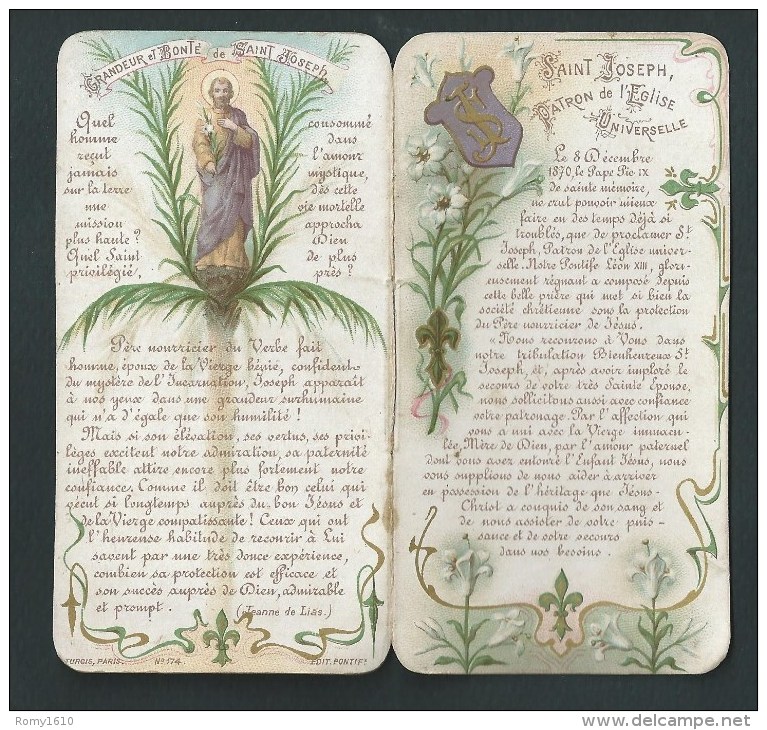 GRANDEUR et BONTÉ de SAINT JOSEPH
Quel
homme
reçut
jamais
sur la terre
une
mission
plus haute?
Quel Saint
privilégié,
consommé
dans
l'amour
mystique,
dès cette
vie mortelle
approcha
Dieu
de plus
près?
Père nourricier du Verbe fait
homme, époux de la Vierge bénie, confident
du mystère de l'Incarnation, Joseph apparaît
à nos yeux dans une grandeur surhumaine
qui n'a d'égale que son humilité!
Mais si son élévation, ses vertus, ses privi-
lèges excitent notre admiration, sa paternité
ineffable attire encore plus fortement notre
confiance. Comme il doit être bon celui qui
vécut si longtemps auprès du bon Jésus et
de la Vierge compatissante! Ceux qui ont
l'heureuse habitude de recourir à Lui
savent par une très douce expérience,
combien sa protection est efficace et
son succès auprès de Dieu, admirable
et prompt. (Jeanne de Liás.)
TURGIS, PARIS. No 174. EDIT. PONTIFx
SJ
SAINT JOSEPH,
PATRON de l'EGLISE
UNIVERSELLE
Le 8 Décembre
1870, le Pape Pie IX
de sainte mémoire,
ne crut pouvoir mieux
faire en des temps déjà si
troublés, que de proclamer St
Joseph, Patron de l'Eglise univer-
selle. Notre Pontife Léon XIII, glori-
eusement régnant a composé depuis
cette belle prière qui met si bien la
société chrétienne sous la protection
du Père nourricier de Jésus.
«Nous recourons à Vous dans
notre tribulation Bienheureux St
Joseph, et, après avoir imploré le
secours de votre très Sainte Epouse,
nous sollicitons aussi avec confiance
votre patronage. Par l'affection qui
vous a uni avec la Vierge immacu-
lée, Mère de Dieu, par l'amour paternel
dont vous avez entouré l'Enfant Jésus, nous
vous supplions de nous aider à arriver
en possession de l'héritage que Jésus-
Christ a conquis de son sang et
de nous assister de votre puis-
sance et de votre secours
dans nos besoins.
Romy1610
delcampe.net